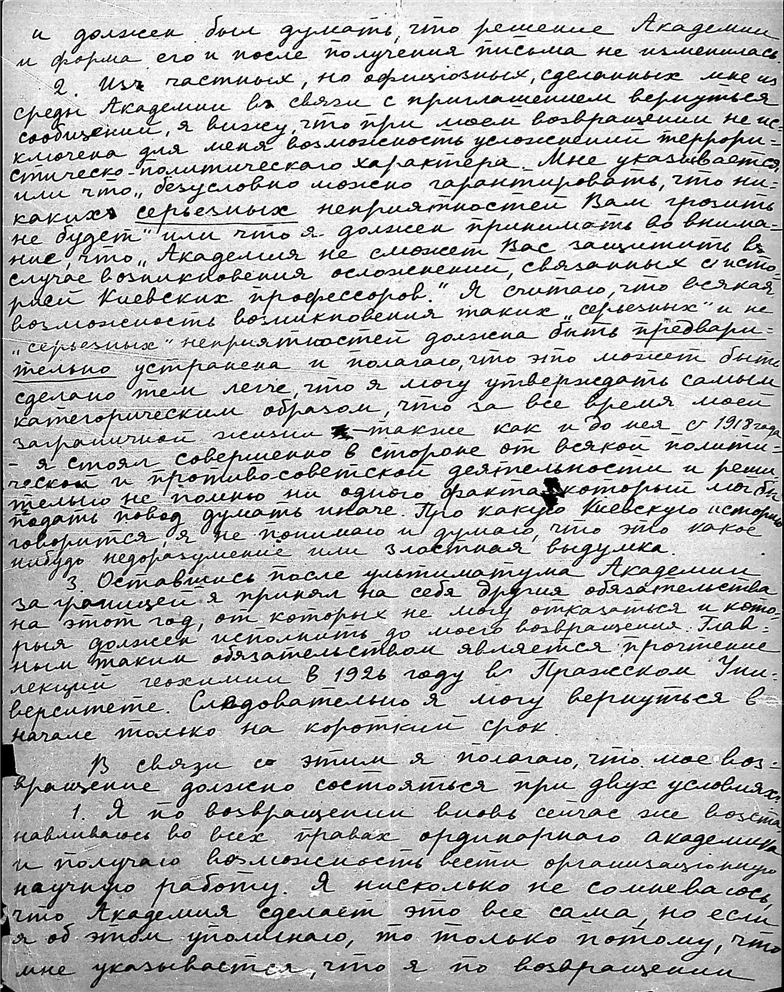 и должен был думать, что решение Академии
и форма его и после получения письма не изменилась.
2. Изъ частных, но официозных, сделанных мне из
среды Академии въ связи с приглашением вернуться
сообщений, я вижу, что при моем возвращении не ис-
ключена для меня возможность усложнений террори-
стическо-политическаго характера. Мне указывается
или что „безусловно можно гарантировать, что ни-
какихъ серьезных неприятностей Вам грозить
не будет" или что я должен принимать во внима-
ние, что „Академия не сможет Вас защитить въ
случае возникновения осложнений, связанных с исто
рией Киевских профессоров." Я считаю, что всякая
возможность возникновения таких „серьезных" и не
„серьезных" неприятностей должна быть предвари-
тельно устранена и полагаю, что это может быть
сделано тем легче, что я могу утверждать самым
категорическим образом, что за все время моей
заграничной жизни – также как и до нея с 1918 года
– я стоял совершенно в стороне от всякой полити-
ческой и противосоветской деятельности и реши
тельно не помню ни одного факта, который мог бы
подать повод думать иначе. Про какую Киевскую историю
говорится я не понимаю и думаю, что это какое
нибудь недоразумение или злостная выдумка.
3. Оставшись после ультиматума Академии
за границей я принял на себя другия обязательства
на этот год, от которых не могу отказаться и кото-
рыя должен исполнить до моего возвращения. Глав-
ным таким обязательством является прочтение
лекций геохимии в 1926 году въ Пражском Уни-
верситете. Следовательно я могу вернуться в
начале только на короткий срок.
В связи со этим я полагаю, что мое воз-
вращение должно состояться при двух условиях.
1. Я по возвращении вновь сейчас же возста
навливаюсь во всех правах ординарнаго академика
и получаю возможность вести организационную
научную работу. Я нисколько не сомневаюсь,
что Академия сделает это все сама, но если
я об этом упоминаю, то только потому, что
мне указывается, что я по возвращении